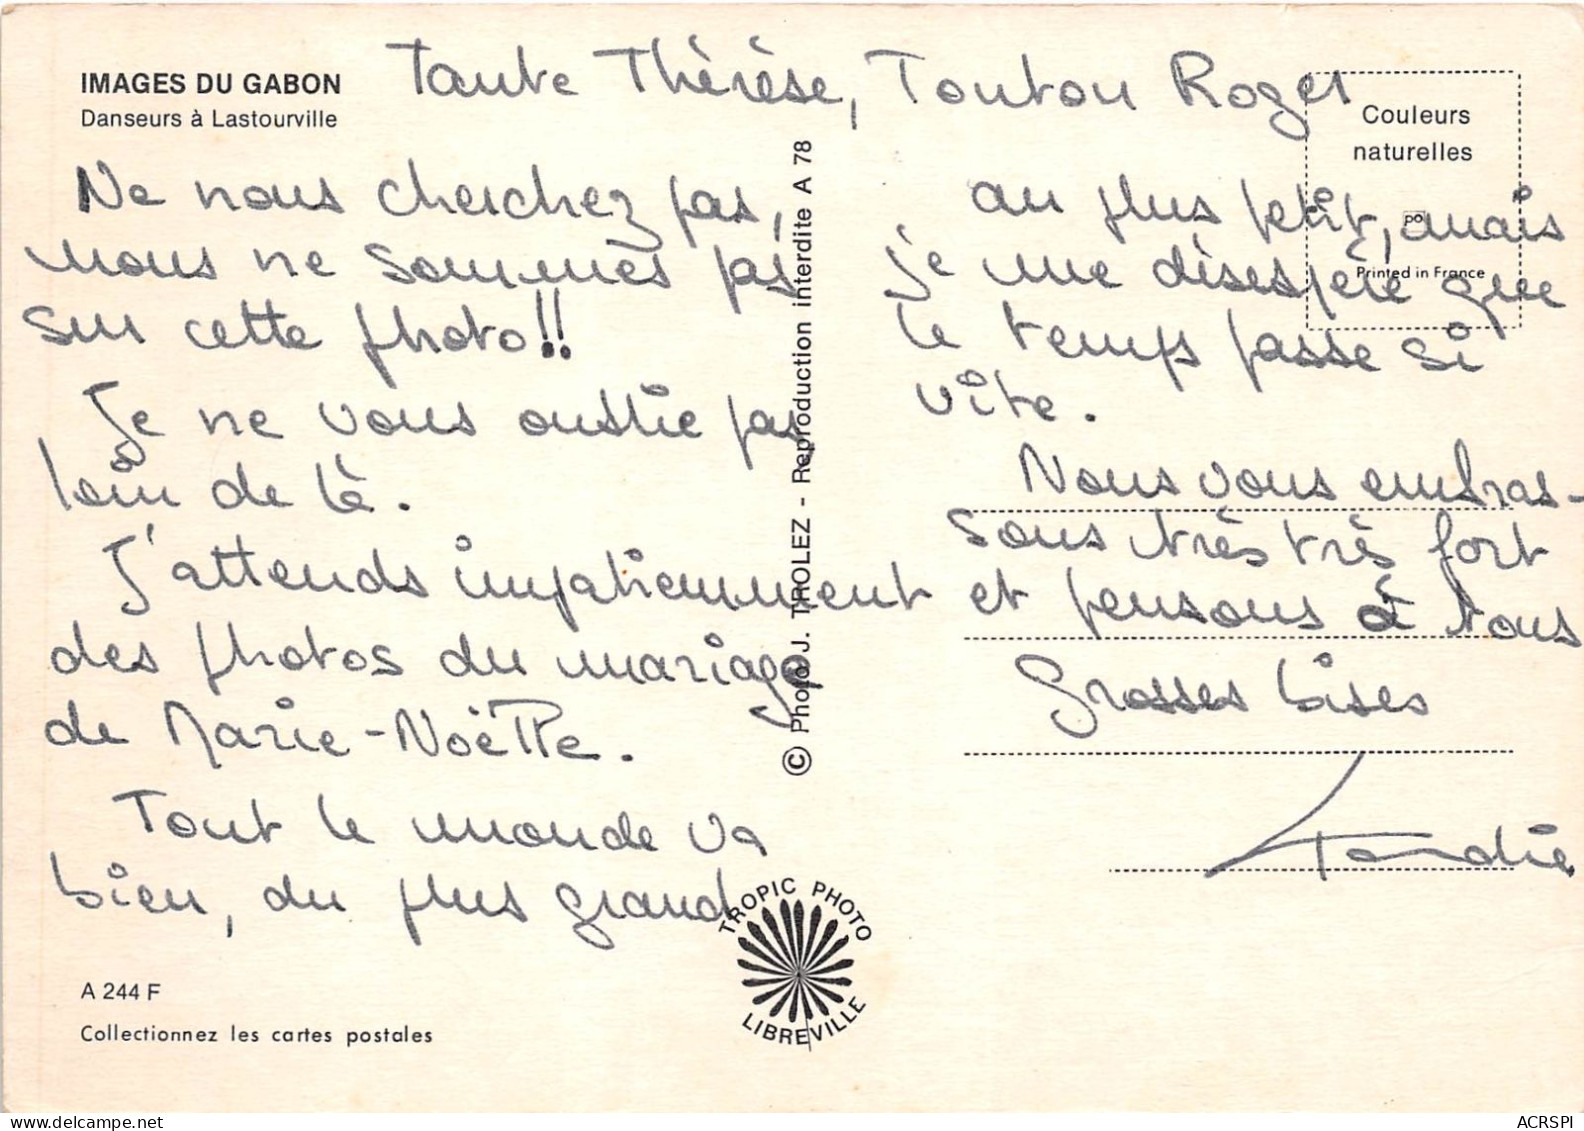 IMAGES DU GABON
Danseurs à Lastourville
Tante Thérèse, Tonton Roger
Ne nous cherchez pas,
nous ne sommes pas
sur cette photo!!
Je ne vous oublie pas
loin de là.
J'attends impatiemment
des photos du mariage
de Marie-Noëlle.
Tout le monde va
bien, du plus grand
A 244 F
Collectionnez les cartes postales
© Photo J. TROLEZ - Reproduction interdite A 78
TROPIC PHOTO
LIBREVILLE
Couleurs
naturelles
po
Printed in France
au plus petit, mais
je me désespère que
le temps passe si
vite.
Nous vous embras-
sons très très fort
et pensons à vous
Grosses bises
ACRSPI